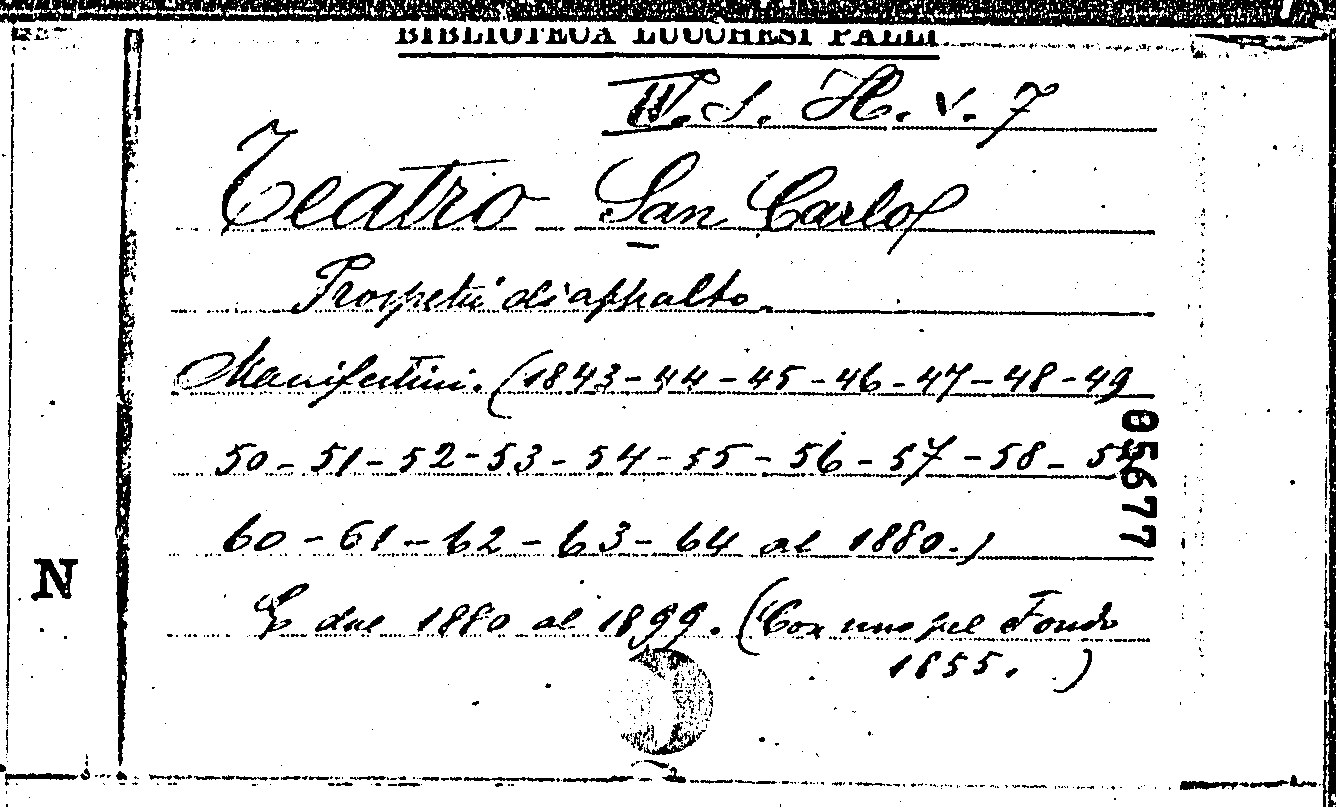 BIBLIOTECA LUCCHESI PALLI
III. S. H. V. 7
Teatro San Carlo
Prospetti di appalto.
Manifestini. (1843-44-45-46-47-48-49
50-51-52-53-54-55-56-57-58-59
60-61-62-63-64 al 1880.)
E dal 1880 al 1899. (Con uno pel Fondo
1855.)
05677
N